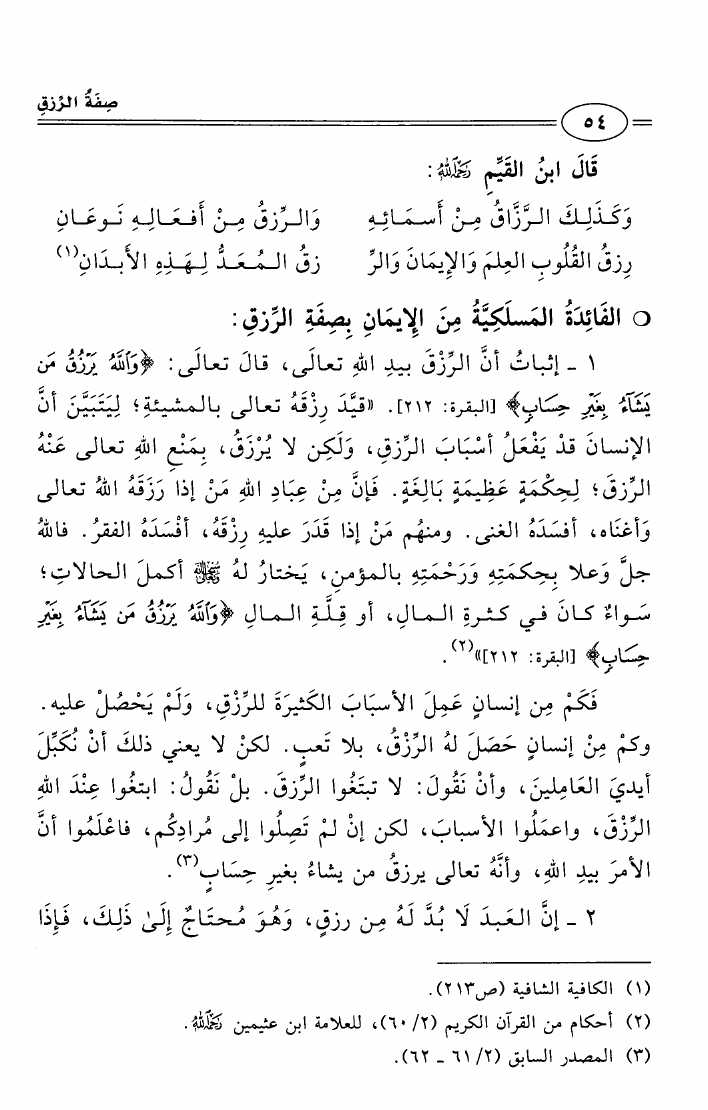 صِفَةُ الرِّزقِ
٥٤
قَالَ ابنُ القَيِّمِ رَحِمَهُ اللهُ:
وَكَذَلِكَ الرَّزَّاقُ مِنْ أَسمَائِهِ وَالرِّزقُ مِنْ أَفعَالِهِ نَوعَانِ
رِزقُ القُلُوبِ العِلمَ وَالإِيمَانَ وَالرِّ زقُ المُعَدُّ لِهَذِهِ الأَبدَانِ(١)
❍ الفَائِدَةُ المَسلَكِيَّةُ مِنَ الإِيمَانِ بِصِفَةِ الرِّزقِ:
١ - إثباتُ أنَّ الرِّزْقَ بيدِ اللهِ تعالَى، قالَ تعالَى: ﴿وَٱللَّهُ يَرْزُقُ مَن
يَشَآءُ بِغَيْرِ حِسَابٍ﴾ [البقرة: ٢١٢]. «قيَّدَ رِزْقَهُ تعالى بالمشيئةِ؛ لِيَتَبَيَّنَ أنَّ
الإنسانَ قدْ يَفْعَلُ أسْبَابَ الرِّزقِ، وَلَكِن لا يُرْزَقُ، بِمَنْعِ اللهِ تعالى عَنْهُ
الرِّزقَ؛ لِحِكْمَةٍ عَظِيمَةٍ بَالِغَةٍ. فَإنَّ مِنْ عِبَادِ اللهِ مَنْ إذا رَزَقَهُ اللهُ تعالى
وَأغنَاه، أفسَدَهُ الغنى. ومنهُم مَنْ إذا قَدَرَ عليهِ رِزْقَهُ، أفْسَدَهُ الفقرُ. فاللهُ
جلَّ وَعلا بِحِكمَتِهِ وَرَحْمَتِهِ بالمؤمنِ، يَختارُ لهُ ﷾ أكملَ الحالاتِ؛
سَواءٌ كانَ في كثرةِ المالِ، أو قِلَّةِ المالِ ﴿وَٱللَّهُ يَرْزُقُ مَن يَشَآءُ بِغَيْرِ
حِسَابٍ﴾ [البقرة: ٢١٢]»(٢).
فَكَمْ مِن إنسانٍ عَمِلَ الأسبَابَ الكَثيرَةَ للرِّزْقِ، وَلَمْ يَحْصُلْ عليه.
وكمْ مِنْ إنسانٍ حَصَلَ لهُ الرِّزْقُ، بلا تَعبٍ. لكنْ لا يعني ذلكَ أنْ نُكَبِّلَ
أيديَ العَامِلينَ، وأنْ نَقُولَ: لا تبتَغُوا الرِّزقَ. بلْ نَقُولُ: ابتغُوا عِنْدَ اللهِ
الرِّزْقَ، واعمَلُوا الأسبابَ، لكن إنْ لمْ تَصِلُوا إلى مُرادِكُم، فاعْلَمُوا أنَّ
الأمرَ بيدِ اللهِ، وأنَّهُ تعالى يرزقُ من يشاءُ بغيرِ حِسَابٍ(٣).
٢ - إنَّ العَبدَ لَا بُدَّ لَهُ مِن رزقٍ، وَهُوَ مُحتَاجٌ إلَىٰ ذَلِكَ، فَإِذَا
(١) الكافية الشافية (ص٢١٣).
(٢) أحكام من القرآن الكريم (٢/ ٦٠)، للعلامة ابن عثيمين رَحِمَهُ اللهُ.
(٣) المصدر السابق (٢/ ٦١ - ٦٢).